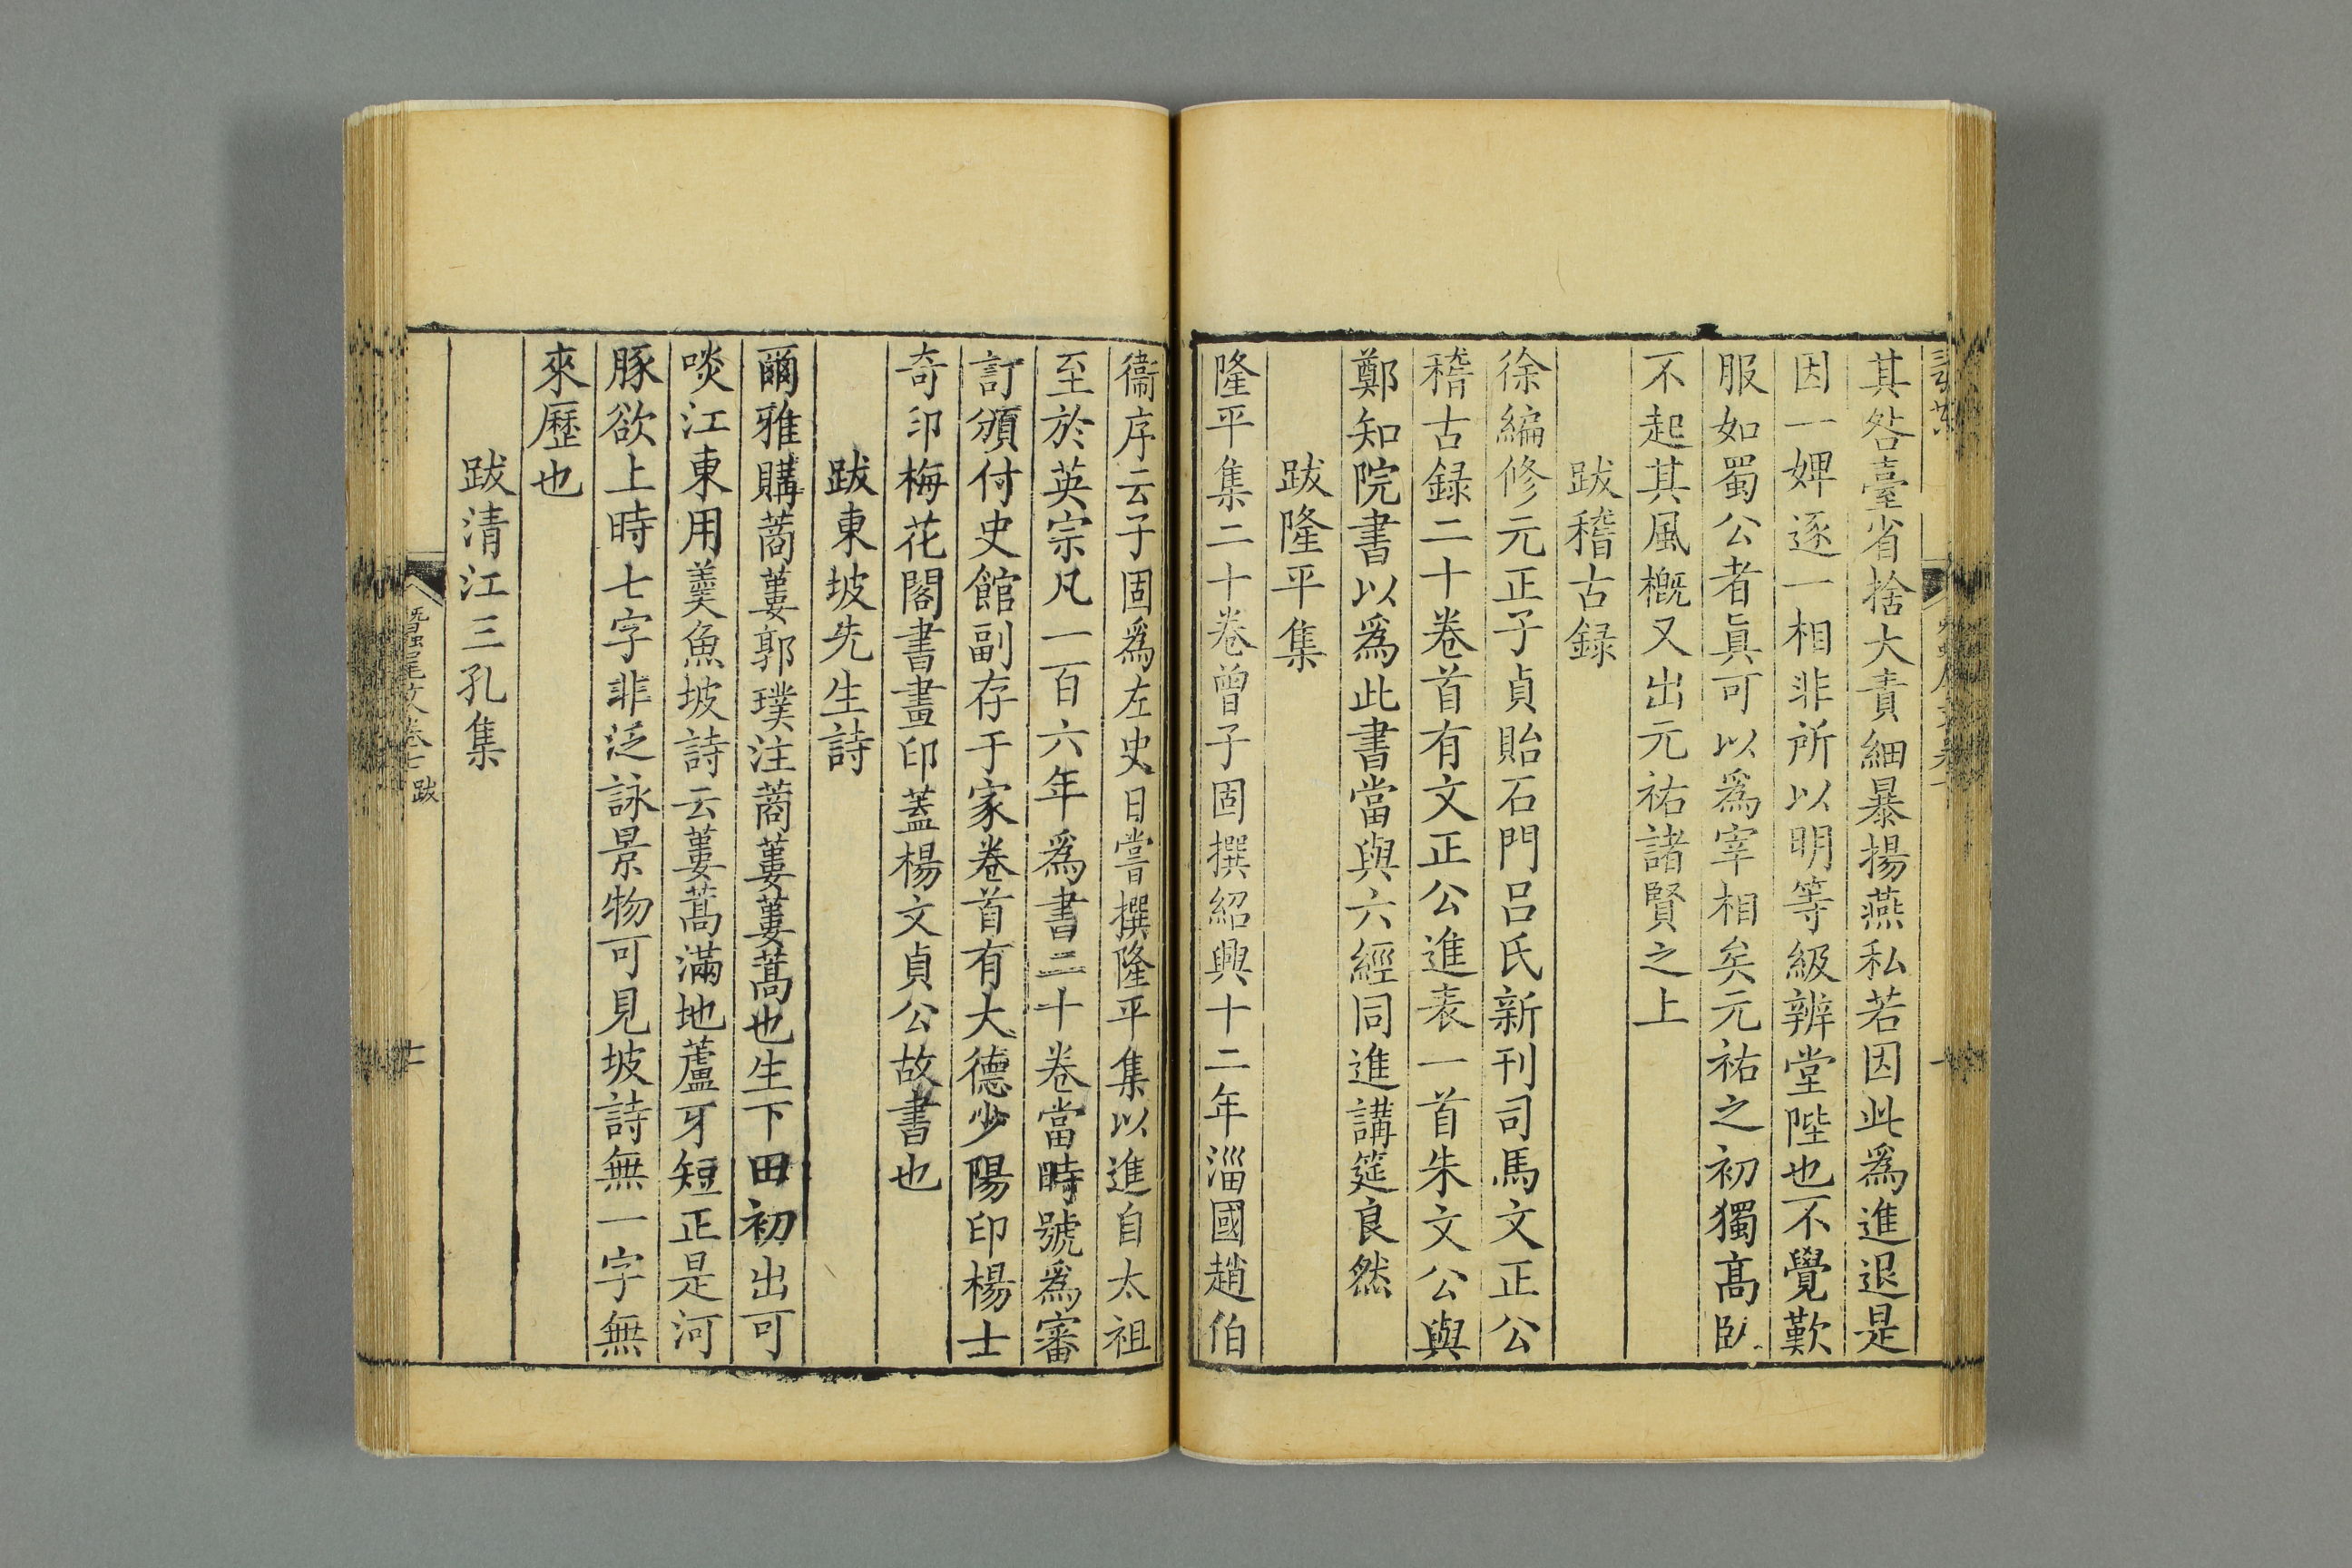 其咎臺省捨大責細暴揚燕私若因此爲進退是
因一婢逐一相非所以明等級辨堂陛也不覺歎
服如蜀公者眞可以爲宰相矣元祐之初獨高臥
不起其風槪又出元祐諸賢之上
跋稽古録
徐編修元正子貞貽石門呂氏新刊司馬文正公
稽古録二十卷首有文正公進表一首朱文公與
鄭知院書以爲此書當與六經同進講筵良然
跋隆平集
隆平集二十卷曾子固撰紹興十二年淄國趙伯
衞序云子固爲左史日嘗撰隆平集以進自太祖
至於英宗凡一百六年爲書二十卷當時號爲審
訂頒付史館副存于家卷首有大德少陽印楊士
奇印梅花閣書畫印蓋楊文貞公故書也
跋東坡先生詩
爾雅購蔏蔞郭璞注蔏蔞蔞蒿也生下田初出可
啖江東用羹魚坡詩云蔞蒿滿地蘆牙短正是河
豚欲上時七字非泛詠景物可見坡詩無一字無
來歷也
跋清江三孔集
蠶尾文卷七 跋